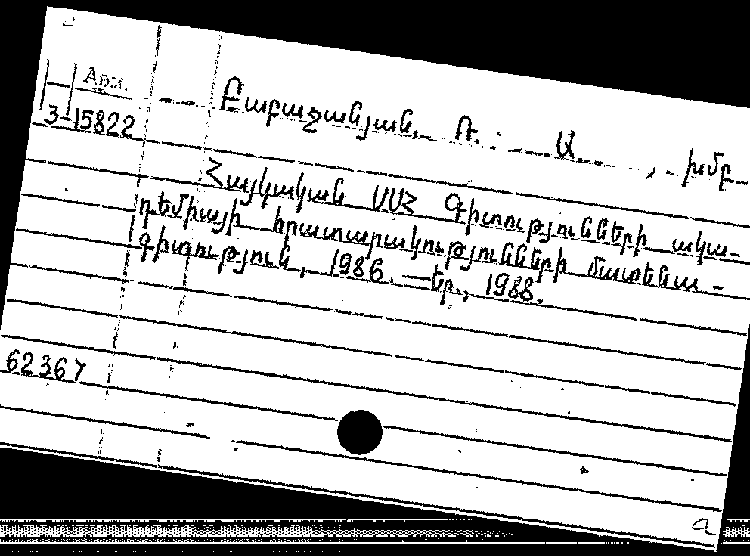 Арм.
3-15822
Բաբաջանյան, Ռ. Ա., խմբ.
Հայկական ՍՍՀ Գիտությունների ակա-
դեմիայի հրատարակությունների մատենա-
գիտություն, 1986. — Եր., 1988.
62367